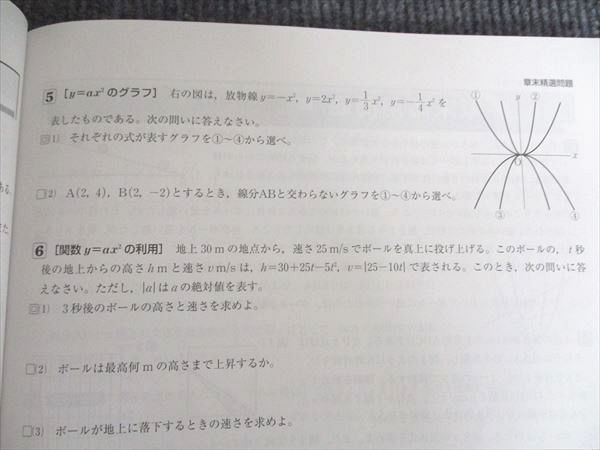 章末精選問題
5 [y=ax²のグラフ] 右の図は，放物線y=−x²，y=2x²，y=\frac{1}{3}x²，y=−\frac{1}{4}x²を
表したものである。次の問いに答えなさい。
□(1) それぞれの式が表すグラフを①～④から選べ。
□(2) A(2, 4)，B(2, −2)とするとき，線分ABと交わらないグラフを①～④から選べ。
① y ②
O x
③ ④
6 [関数y=ax²の利用] 地上30mの地点から，速さ25m/sでボールを真上に投げ上げる。このボールの，t秒
後の地上からの高さhmと速さvm/sは，h=30+25t−5t²，v=|25−10t|で表される。このとき，次の問いに答
えなさい。ただし，|a|はaの絶対値を表す。
□(1) 3秒後のボールの高さと速さを求めよ。
□(2) ボールは最高何mの高さまで上昇するか。
□(3) ボールが地上に落下するときの速さを求めよ。